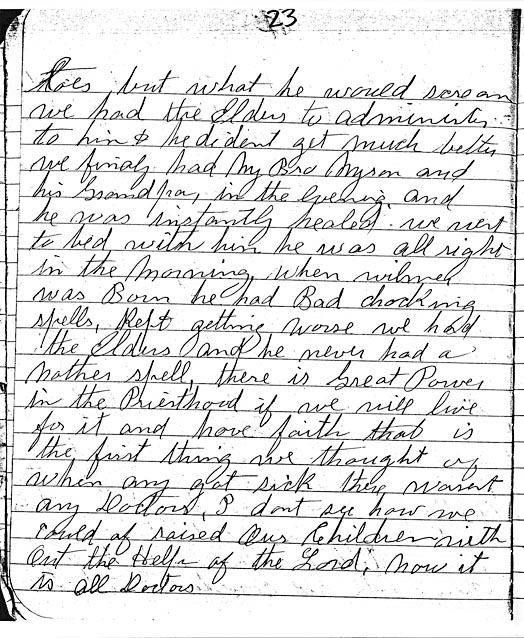 23
toes, but what he would scream
we had the Elders to administer
to him & he dident get much better
we finaly had My Bro Myron and
his Grandpa, in the Evening, and
he was instantly healed. we went
to bed with him he was all right
in the Morning, when wilmer
was Born he had Bad chocking
spells, Kept getting worse we had
the Elders and he never had a
nother spell, there is Great Power
in the Priesthood if we will live
for it and have faith that is
the first thing we thought of
when any got sick there wasent
any Doctors, I dont see how we
could of raised Our Children with
Out the Help of the Lord, Now it
is all Doctors